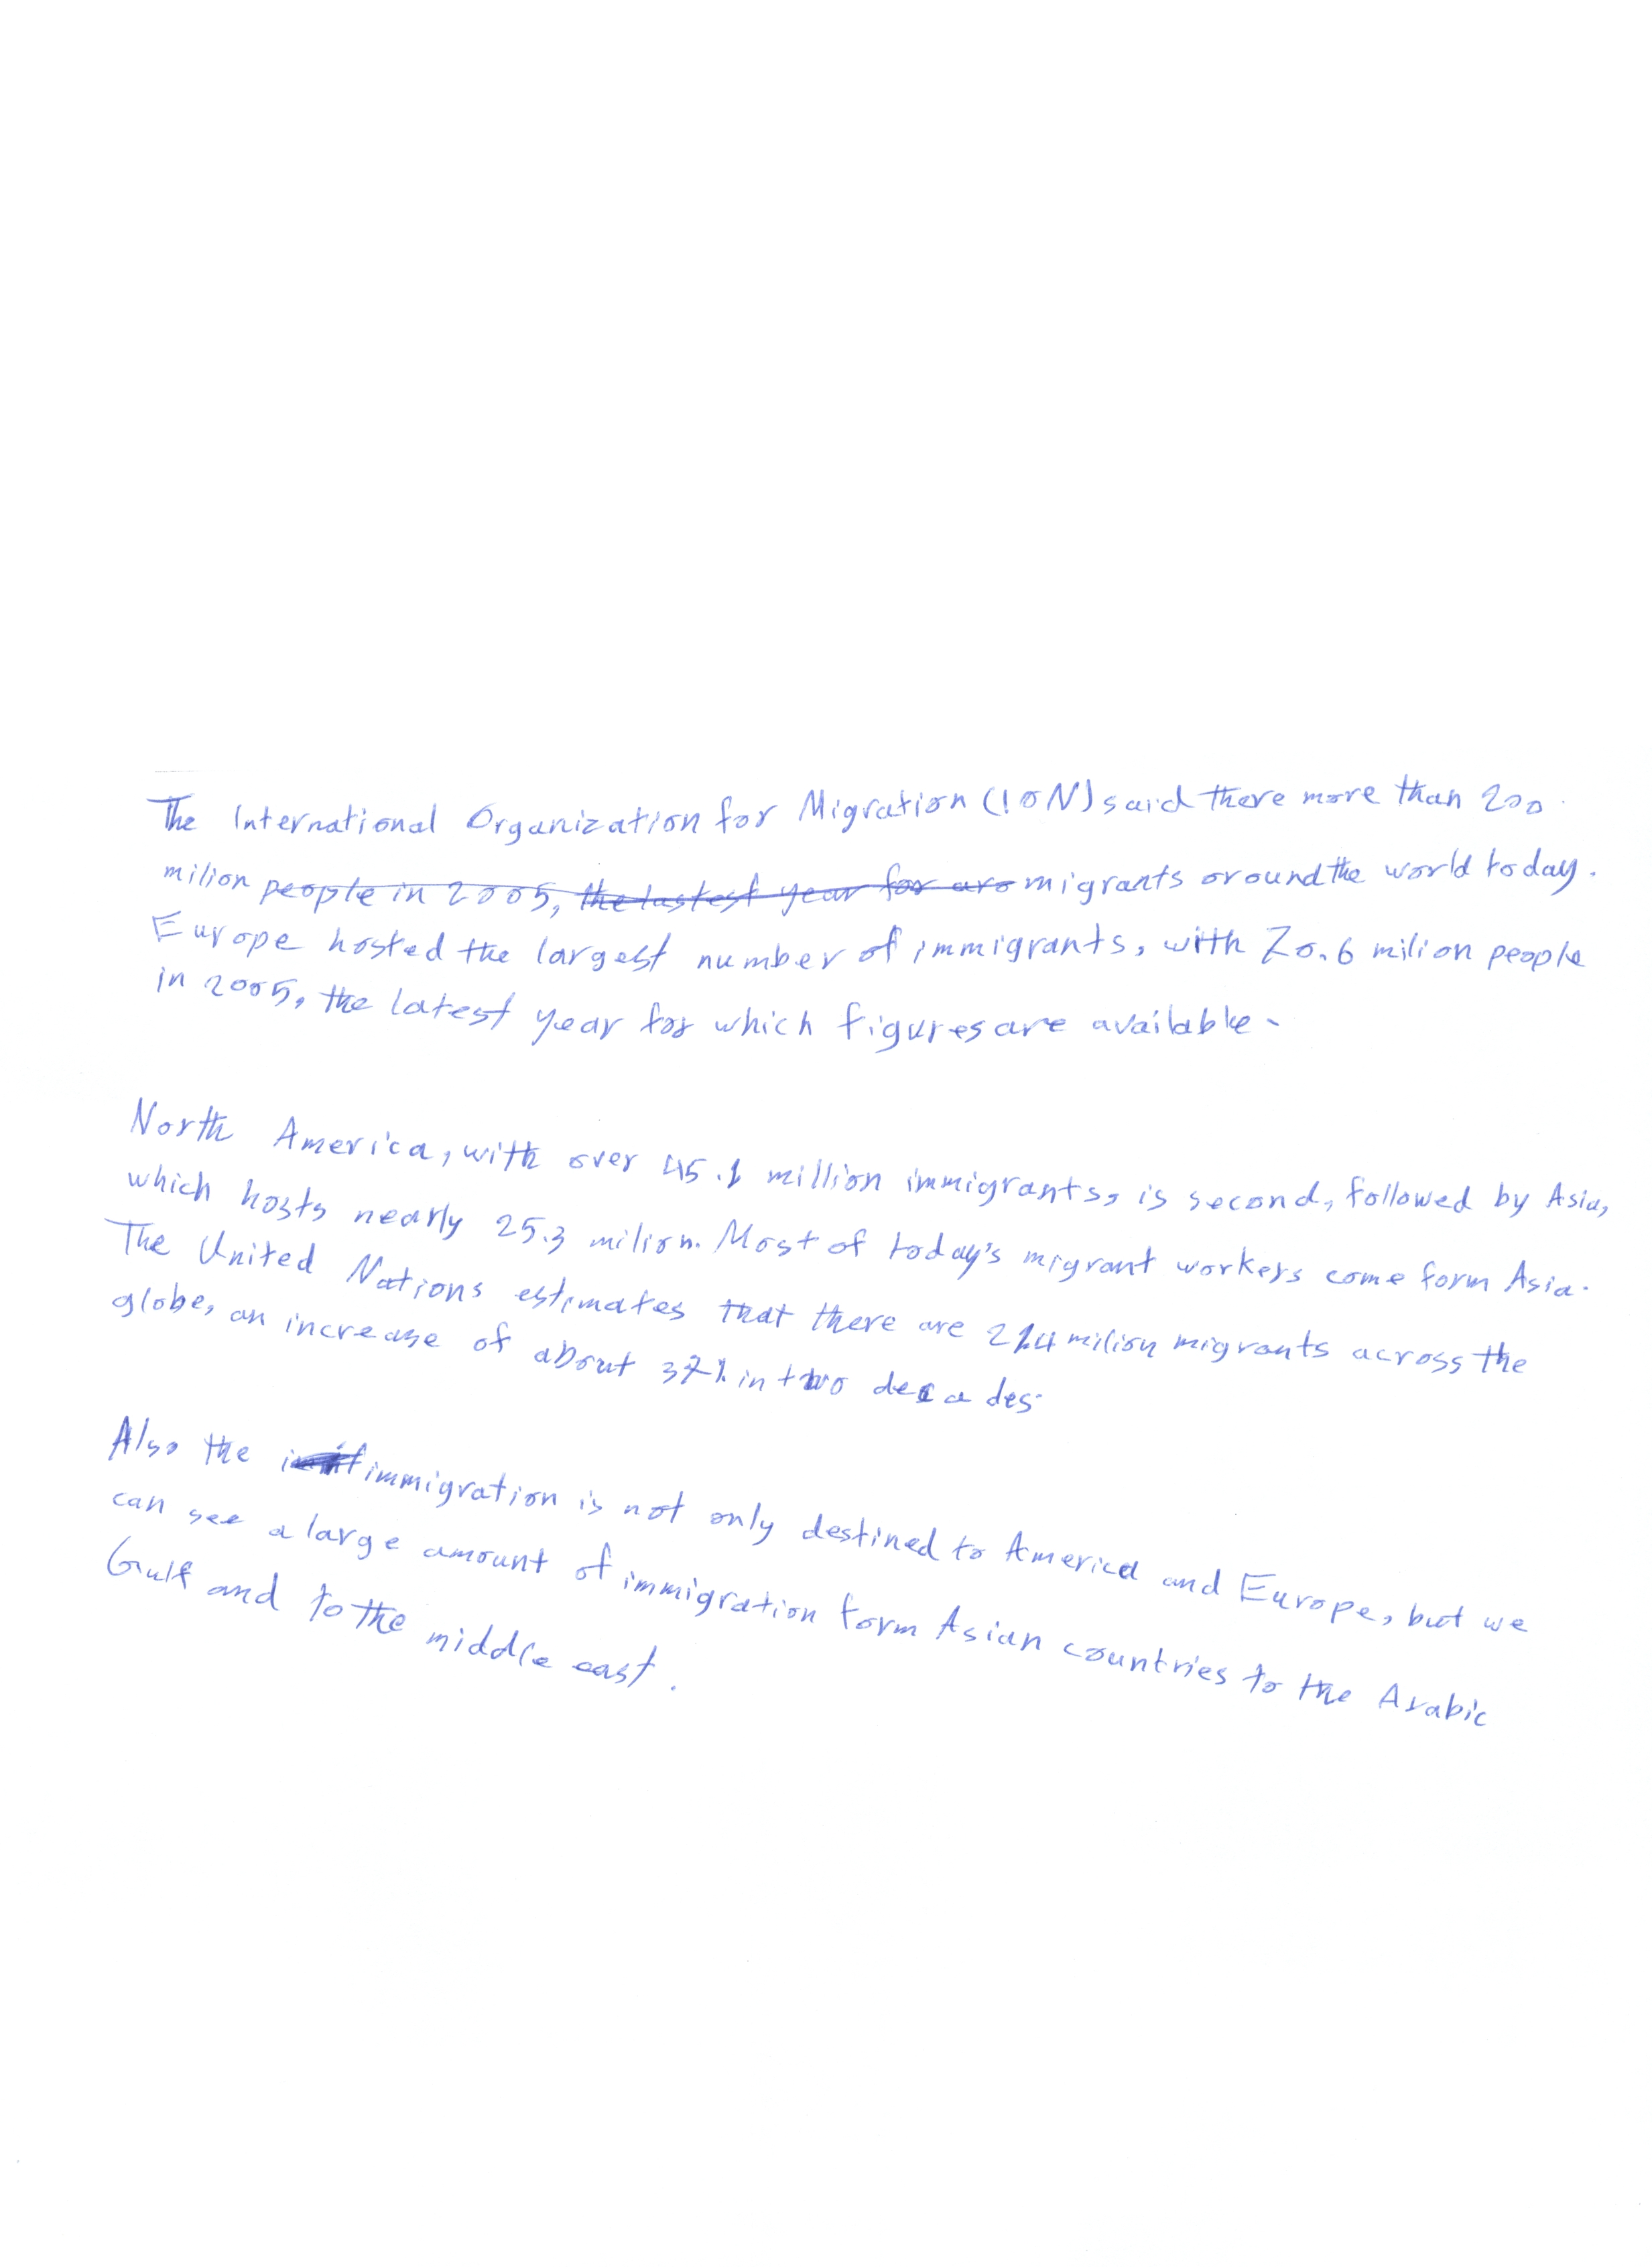 The International Organization for Migration (ION) said there more than 200
milion people in 2005, the lastest year for aro migrants oround the world today.
Europe hosted the largest number of immigrants, with 70.6 milion people
in 2005, the latest year for which figures are available.
North America, with over 45.1 million immigrants, is second, followed by Asia,
which hosts nearly 25.3 milion. Most of today's migrant workers come form Asia.
The United Nations estimates that there are 214 milion migrants across the
globe, an increase of about 37% in two decades.
Also the immigration is not only destined to America and Europe, but we
can see a large amount of immigration form Asian countries to the Arabic
Gulf and to the middle east.